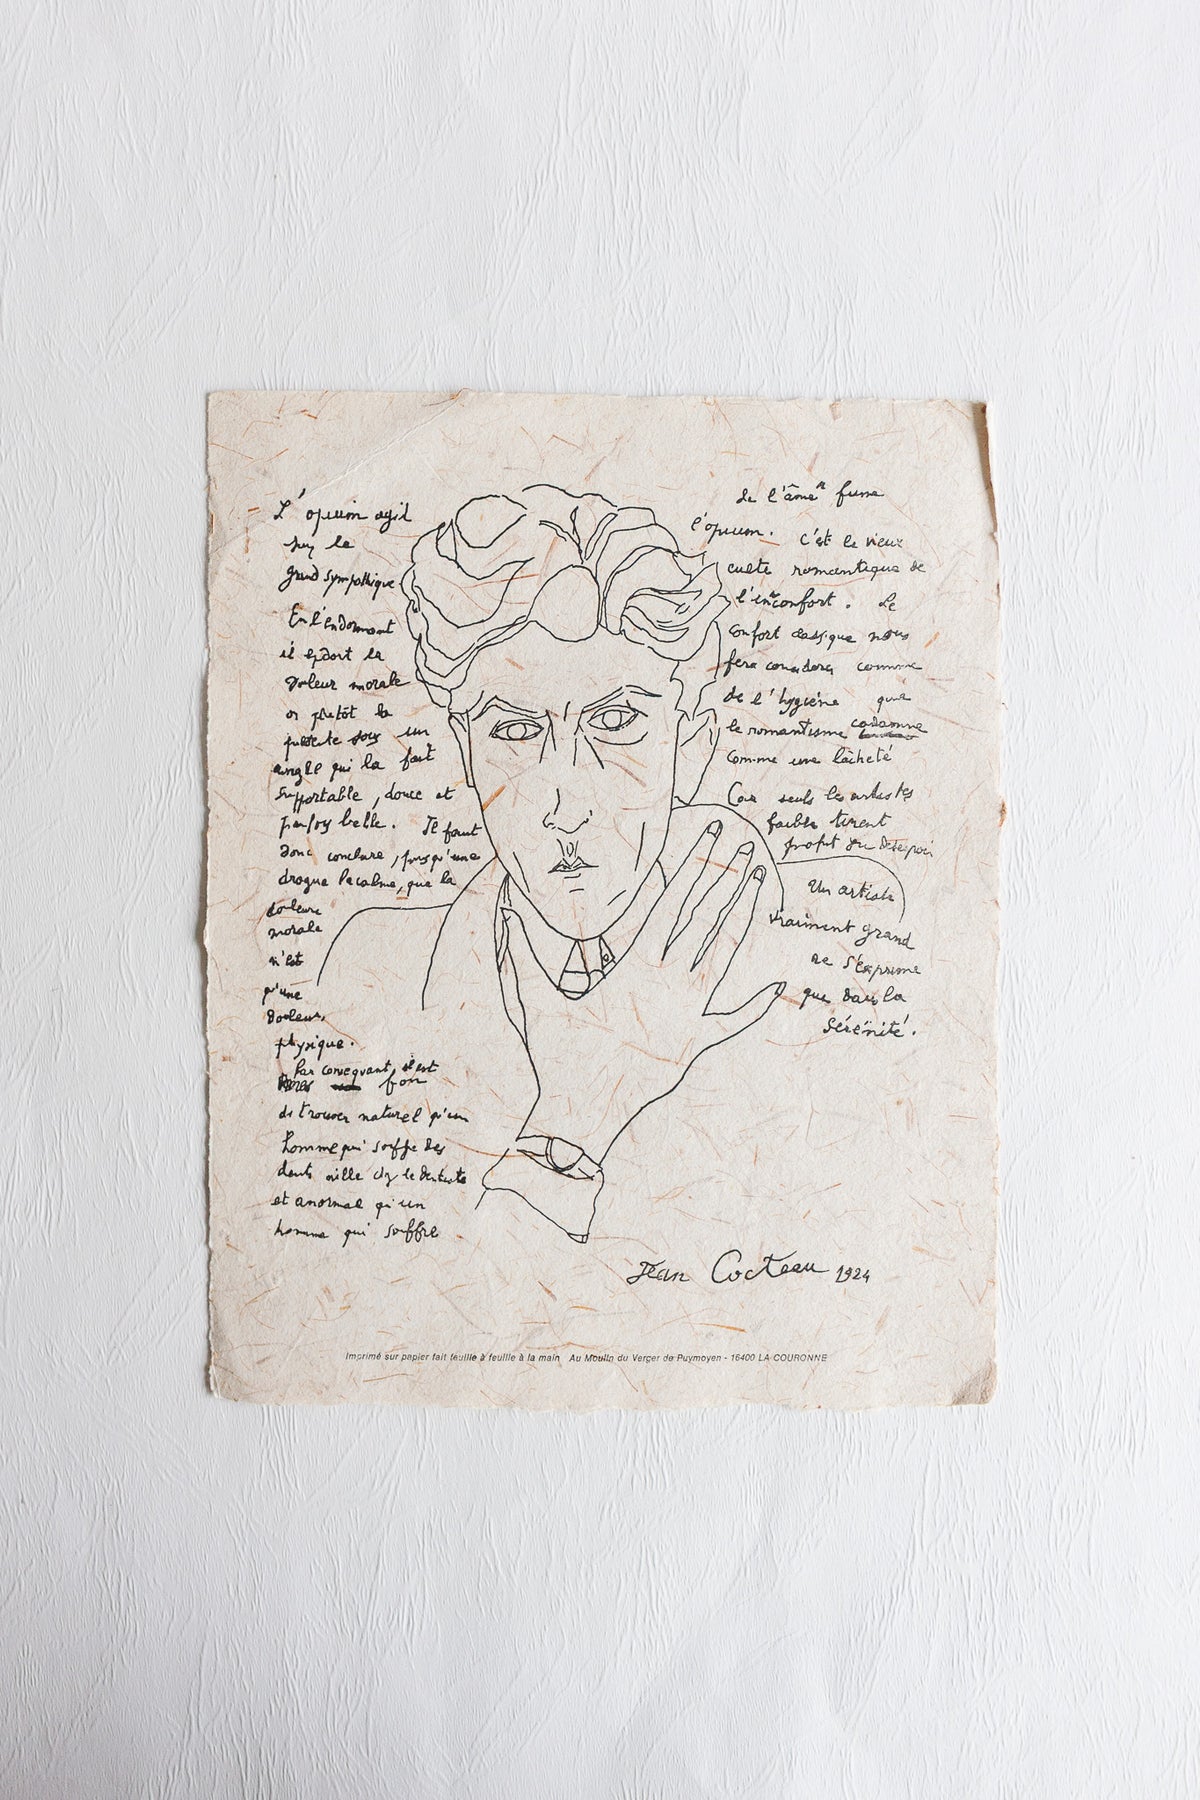 L'opium agit
sur le
grand sympathique
En l'endormant
il endort la
douleur morale
ou plutôt la
présente sous un
angle qui la fait
supportable, douce et
parfois belle. Il faut
donc conclure, puisqu'une
drogue la calme, que la
douleur
morale
n'est
qu'une
douleur
physique.
Par conséquant, il est
bon
de trouver naturel qu'un
homme qui souffre des
dents aille chez le dentiste
et anormal qu'un
homme qui souffre
de l'âme fume
l'opium. C'est le vieux
culte romantique de
l'inconfort. Le
confort classique nous
fera considérer comme
de l'hygiène que
le romantisme condamne
comme une lâcheté
Car seuls les artistes
faible tirent
profit du désespoir
Un artiste
vraiment grand
ne s'exprime
que dans la
sérénité.
Jean Cocteau 1924
Imprimé sur papier fait feuille à feuille à la main Au Moulin du Verger de Puymoyen - 16400 LA COURONNE